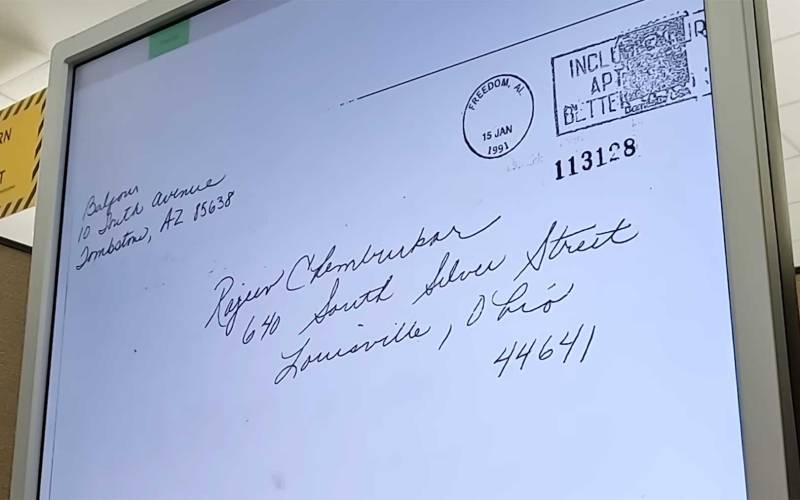 RN
T
FREEDOM, AL
15 JAN
1991
INCLU
APT
BETTER
113128
Balfour
10 South Avenue
Tombstone, AZ 85638
Rajeev Chemburkar
640 South Silver Street
Louisville, Ohio
44641